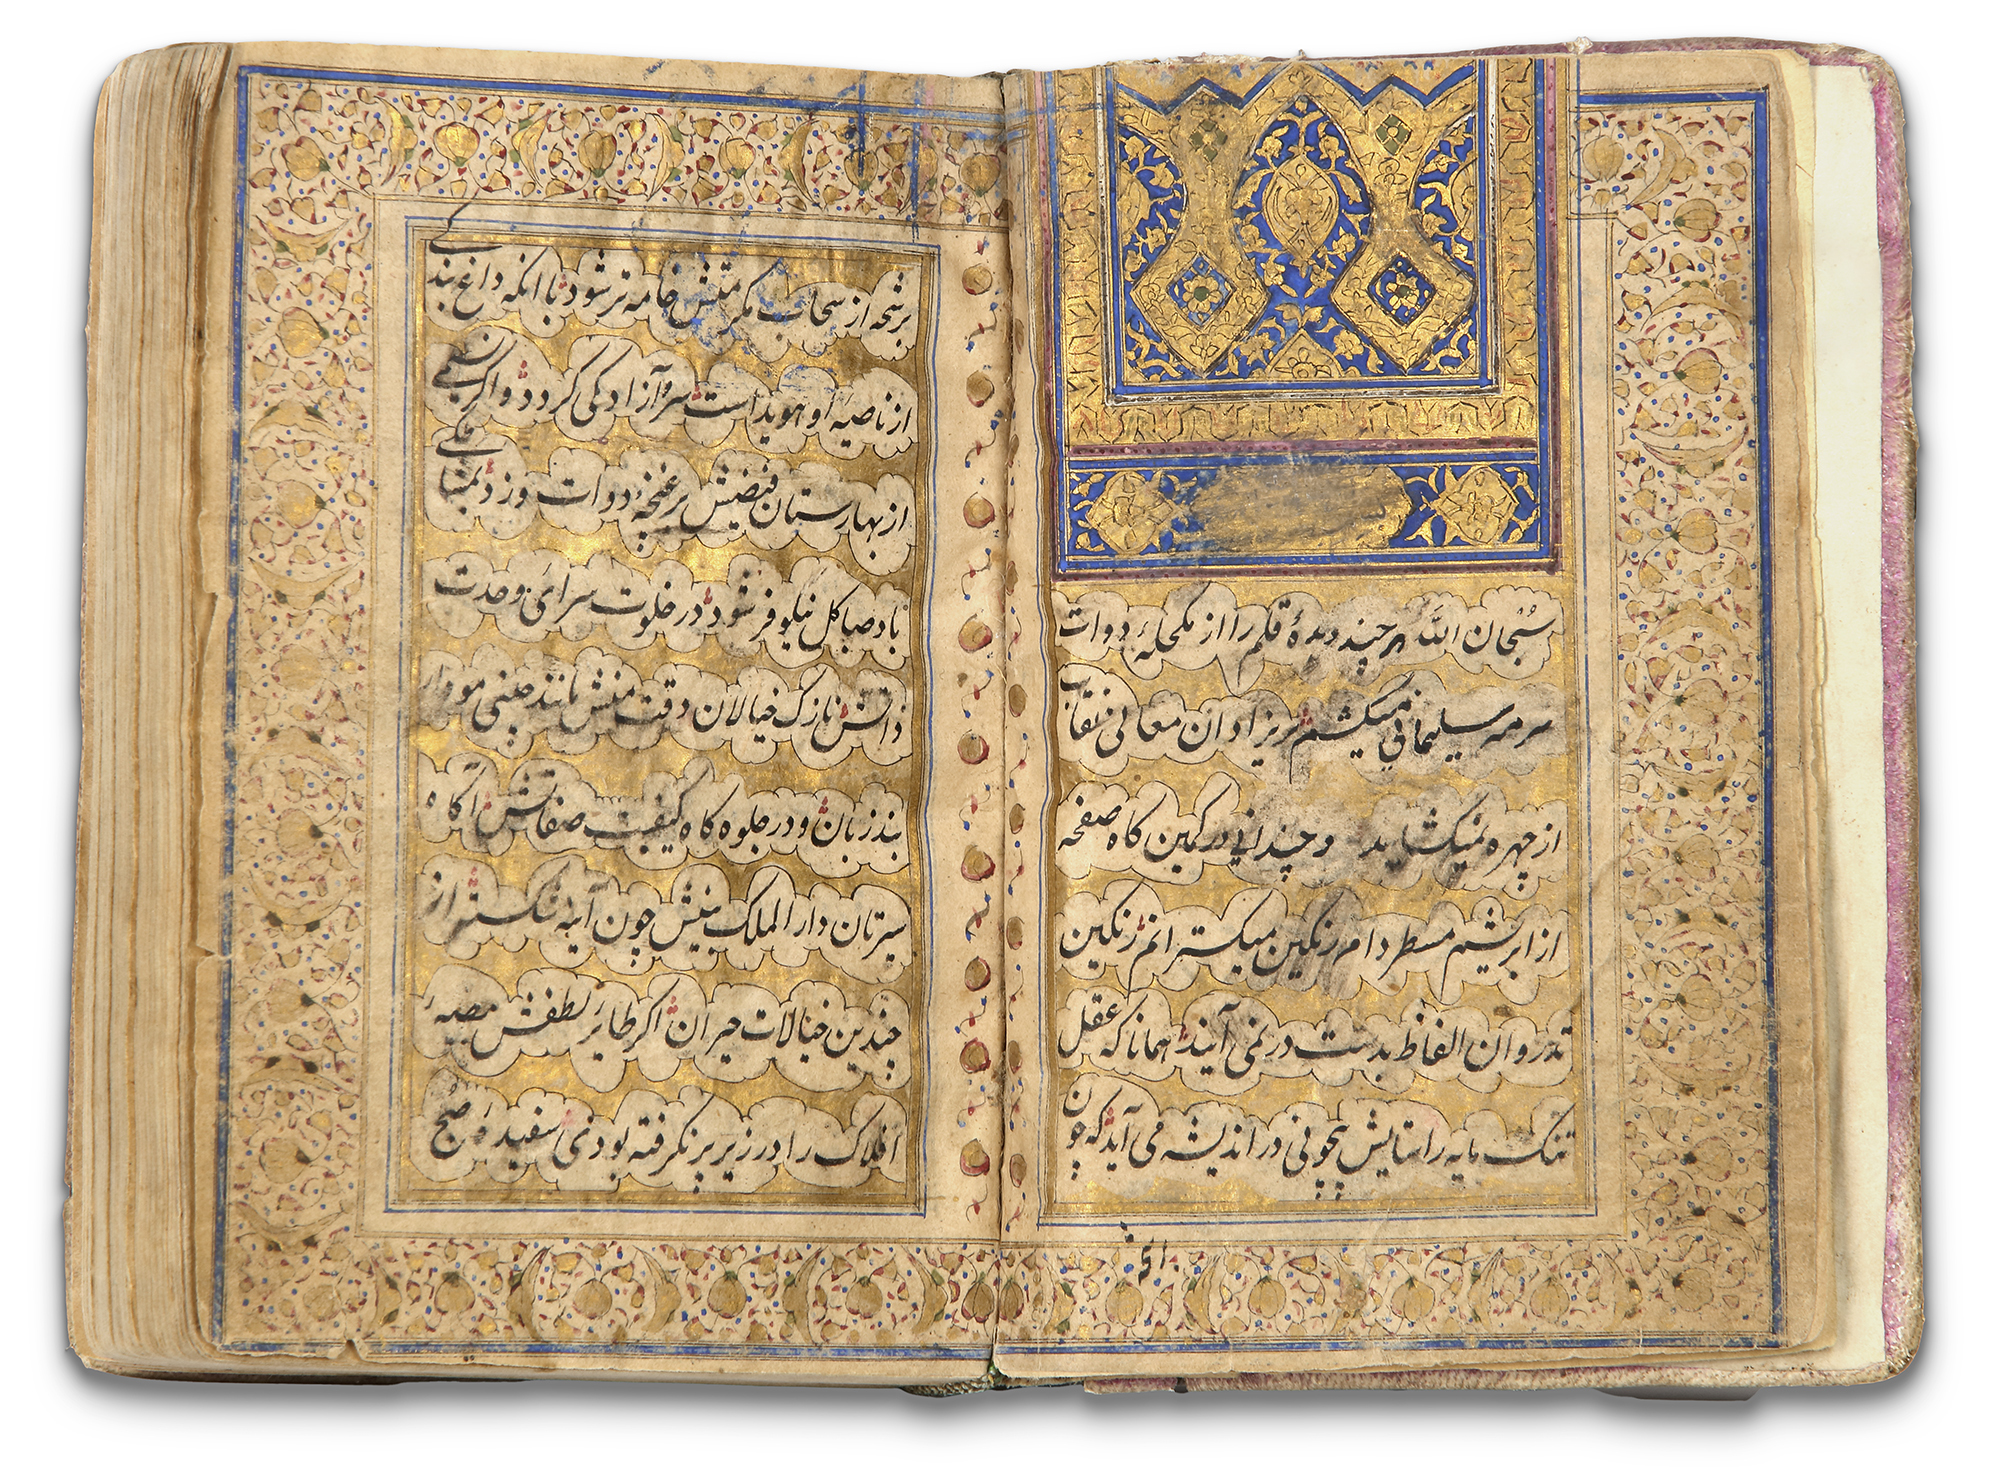 سُبحان اللّه هرچند دیدهٔ قلم را از مکحلهٔ دوات
سرمه سلیمانی میکشم پریزادان معانی نقاب
از چهره نمیکشاید و چندانی در کمین کاه صفحه
از ابریشم مسطر دام رنکین میکسترانم رنکین
تذروان الفاظ بدست در نمی آیند همانا که عقل
تنک مایه را ستایش بیچونی در اندیشه می آید که چون
برشحه از سحاب مکرمتش خامه تر شود با آنکه داغ بندکی
از ناصیه او هویداست سر و آزادکی کردد و اکر
از بهارستان فیضش بر غنچهٔ دوات وزد
باد صبا کل نیلوفر شود در خلوت سرای وحدت
ذاتش نازک خیالان دقت منش مانند چینی مودار
بند زبان و در جلوه کاه کیفیت صفاتش آکاه
سیرتان دار الملک بینش چون آینه شکسته از
چندین خیالات حیران اکر طایر لطفش بیضهٔ
افلاک را در زیر پر نکرفته بودی سفیدهٔ صبح